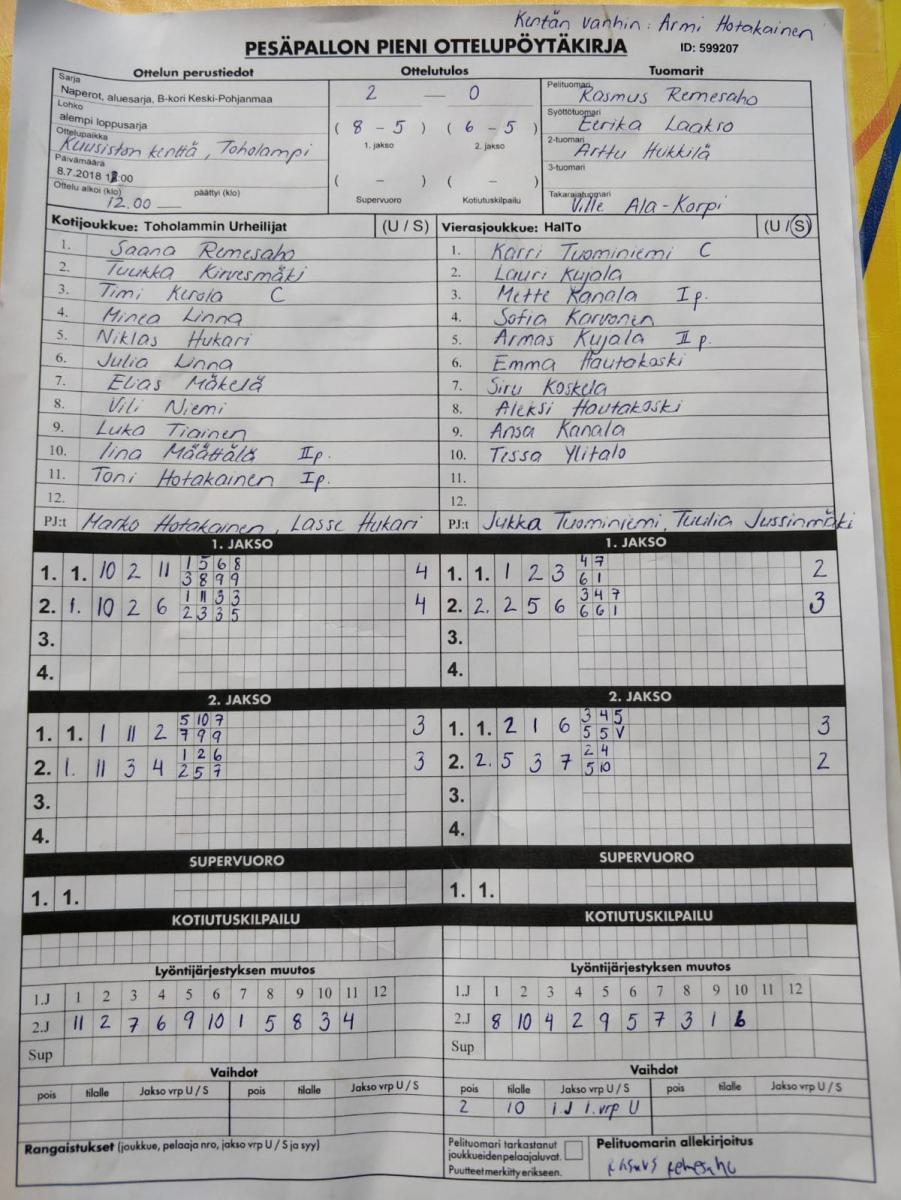 Kentän vanhin: Armi Hotakainen
PESÄPALLON PIENI OTTELUPÖYTÄKIRJA ID: 599207
Ottelun perustiedot
Sarja
Naperot, aluesarja, B-kori Keski-Pohjanmaa
Lohko
alempi loppusarja
Ottelupaikka
Kuusiston kenttä, Toholampi
Päivämäärä
8.7.2018 12:00
Ottelu alkoi (klo) päättyi (klo)
12.00
Ottelutulos
2 — 0
( 8 - 5 ) ( 6 - 5 )
1. jakso 2. jakso
( - ) ( - )
Supervuoro Kotiutuskilpailu
Tuomarit
Pelituomari
Rasmus Remesaho
Syöttötuomari
Eerika Laakso
2-tuomari
Arttu Hukkilä
3-tuomari
Takarajatuomari
Ville Ala-Korpi
Kotijoukkue: Toholammin Urheilijat (U / S)
1. Saana Remesaho
2. Tuukka Kirvesmäki
3. Timi Kerola C
4. Minea Linna
5. Niklas Hukari
6. Julia Linna
7. Elias Mäkelä
8. Vili Niemi
9. Luka Tiainen
10. Iina Määttälä II p.
11. Toni Hotakainen I p.
12.
PJ:t Marko Hotakainen, Lasse Hukari
Vierasjoukkue: HalTo (U / S)
1. Karri Tuominiemi C
2. Lauri Kujala
3. Mette Kanala I p.
4. Sofia Karvonen
5. Armas Kujala II p.
6. Emma Hautakoski
7. Siru Koskela
8. Aleksi Hautakoski
9. Ansa Kanala
10. Tissa Ylitalo
11.
12.
PJ:t Jukka Tuominiemi, Tuulia Jussinmäki
1. JAKSO
1. 1. 10 2 11 1 5 6 8 4
3 8 9 9
2. 1. 10 2 6 1 11 3 3 4
2 3 3 5
3.
4.
1. JAKSO
1. 1. 1 2 3 4 7 2
6 1
2. 2. 2 5 6 3 4 7 3
6 6 1
3.
4.
2. JAKSO
1. 1. 1 11 2 5 10 7 3
7 9 9
2. 1. 11 3 4 1 2 6 3
2 5 7
3.
4.
2. JAKSO
1. 1. 2 1 6 3 4 5 3
5 5 V
2. 2. 5 3 7 2 4 2
5 10
3.
4.
SUPERVUORO
1. 1.
SUPERVUORO
1. 1.
KOTIUTUSKILPAILU
KOTIUTUSKILPAILU
Lyöntijärjestyksen muutos
1.J 1 2 3 4 5 6 7 8 9 10 11 12
2.J 11 2 7 6 9 10 1 5 8 3 4
Sup
Lyöntijärjestyksen muutos
1.J 1 2 3 4 5 6 7 8 9 10 11 12
2.J 8 10 4 2 9 5 7 3 1 6
Sup
Vaihdot
pois tilalle Jakso vrp U / S pois tilalle Jakso vrp U / S
Vaihdot
pois tilalle Jakso vrp U / S pois tilalle Jakso vrp U / S
2 10 1.J 1.vrp U
Rangaistukset (joukkue, pelaaja nro, jakso vrp U / S ja syy)
Pelituomari tarkastanut
joukkueiden pelaajaluvat.
Puutteet merkitty erikseen.
Pelituomarin allekirjoitus
Rasmus Remesaho